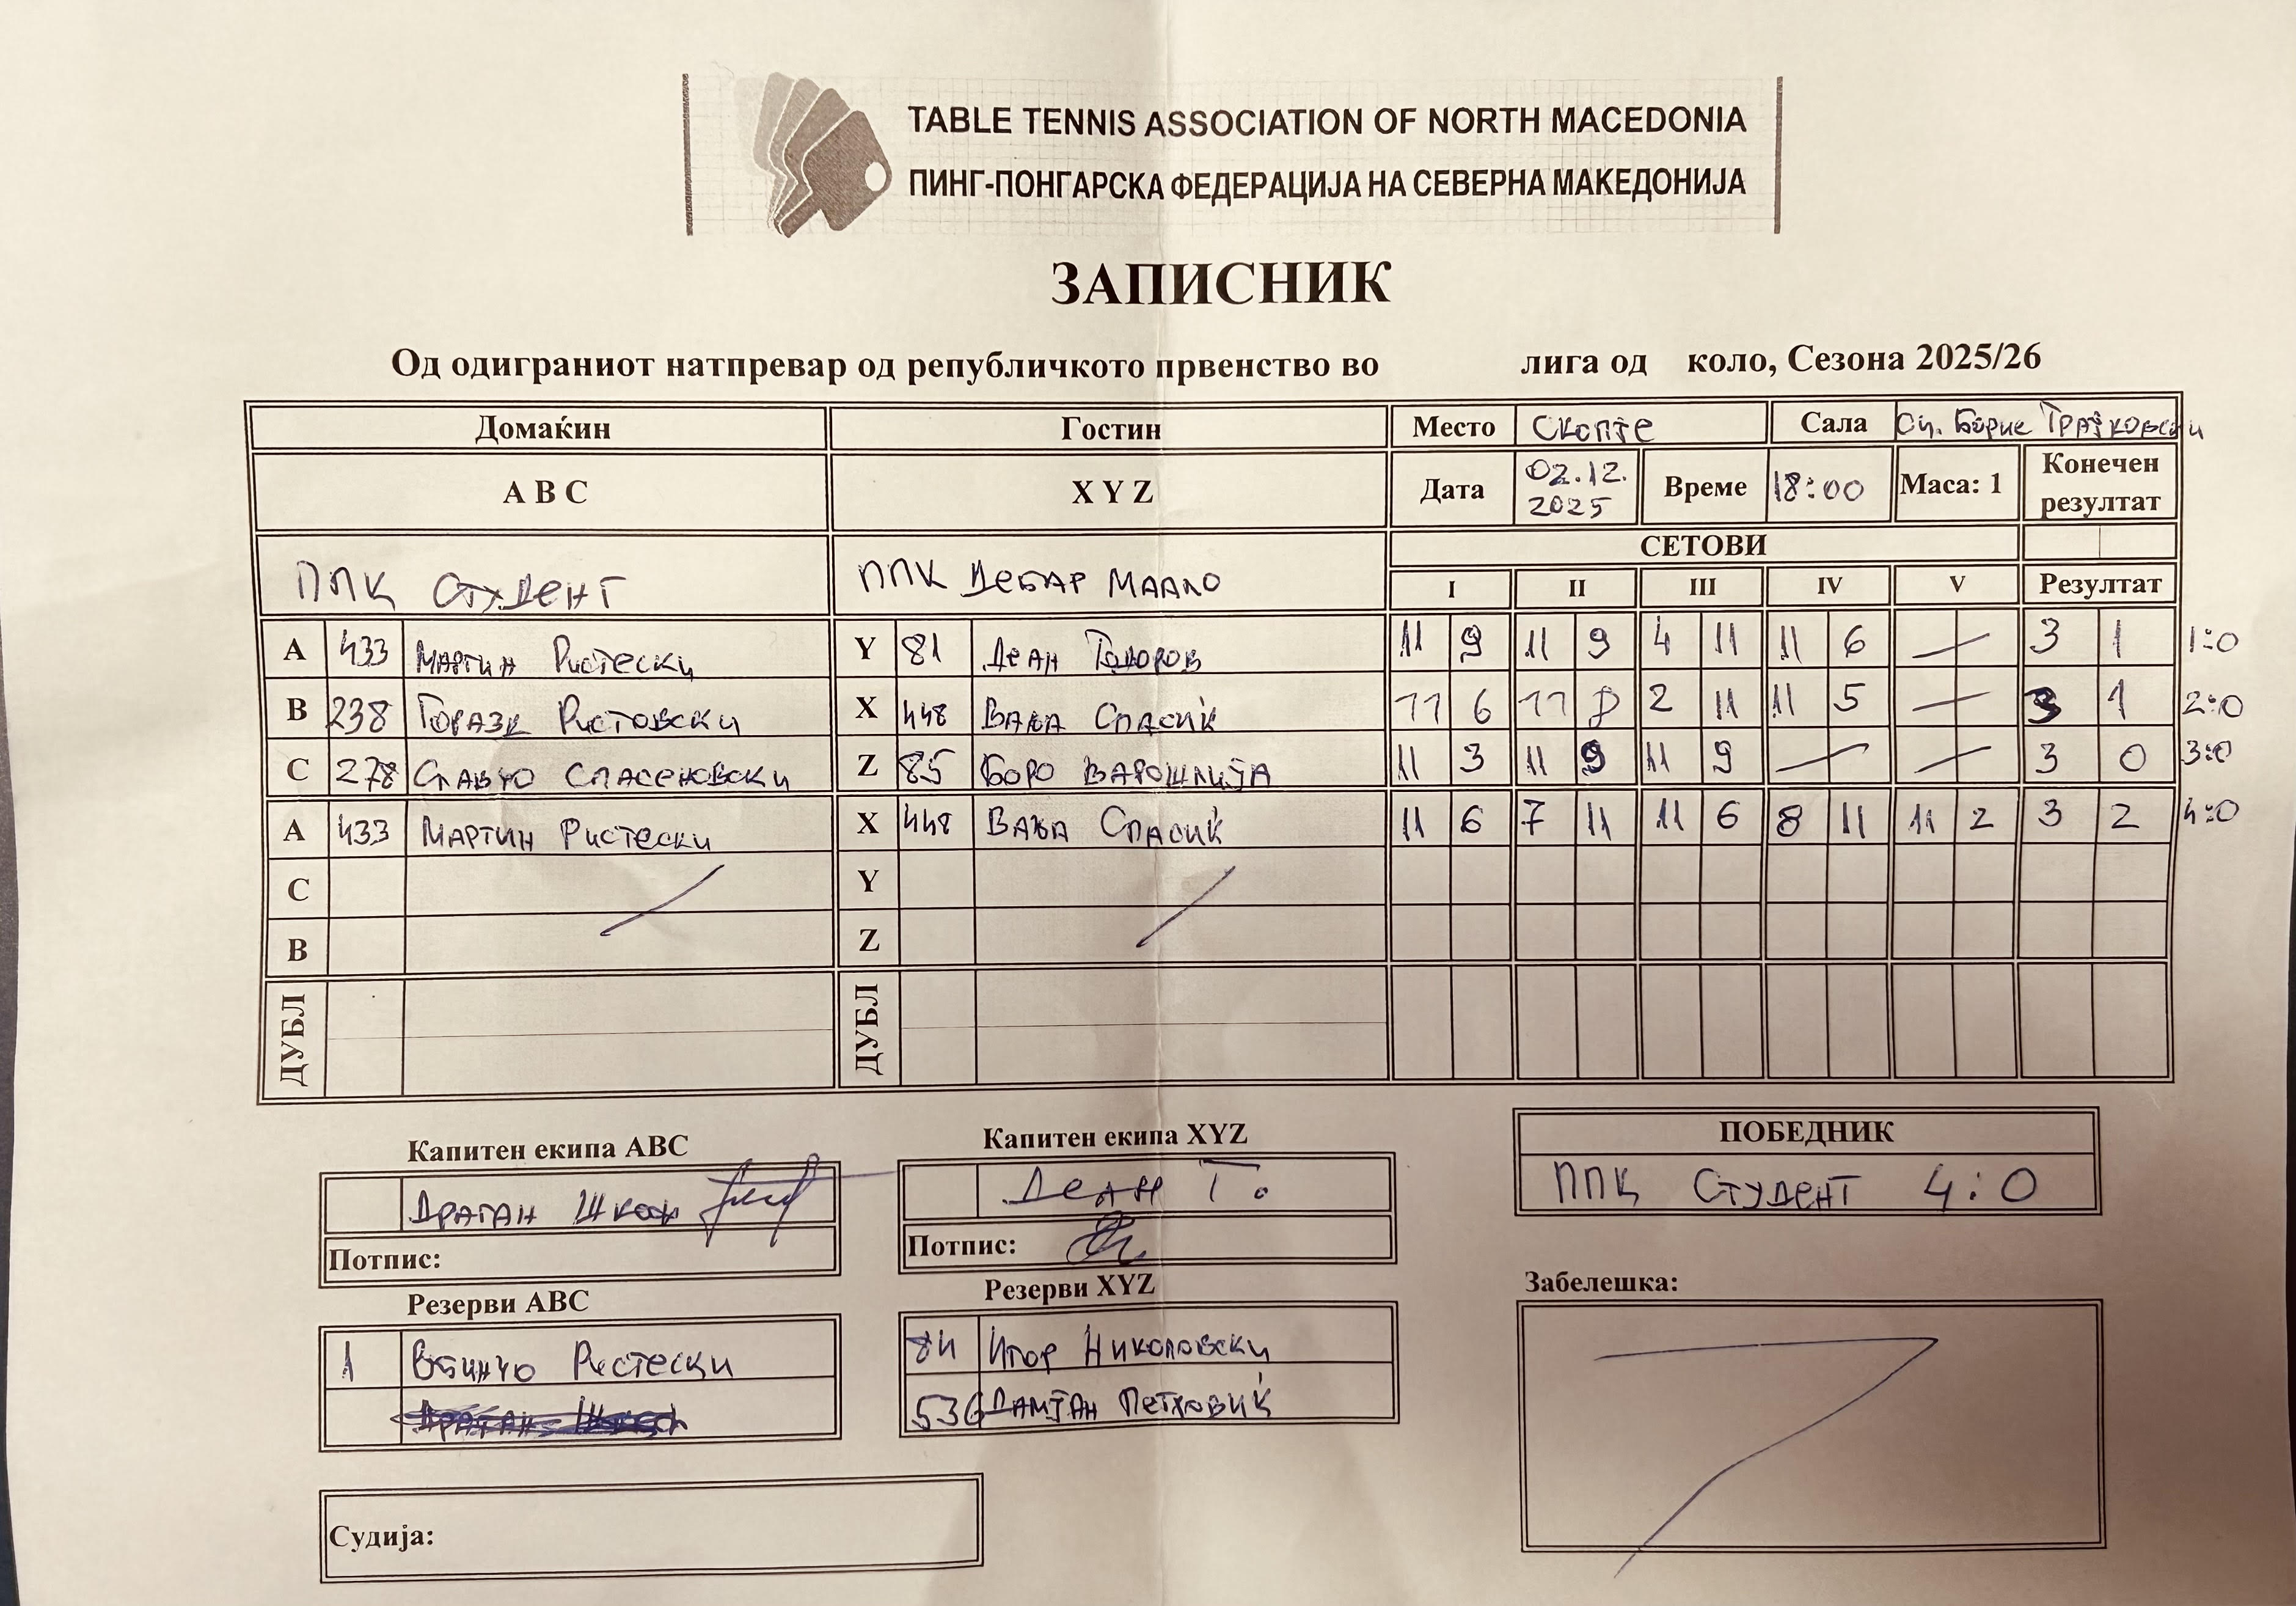 TABLE TENNIS ASSOCIATION OF NORTH MACEDONIA
ПИНГ-ПОНГАРСКА ФЕДЕРАЦИЈА НА СЕВЕРНА МАКЕДОНИЈА
ЗАПИСНИК
Од одиграниот натпревар од републичкото првенство во лига од коло, Сезона 2025/26
Домаќин Гостин Место Скопје Сала Сц. Борис Трајковски
A B C X Y Z Дата 02.12. 2025 Време 18:00 Маса: 1 Конечен резултат
ППК Студент ППК Дебар Маало СЕТОВИ
I II III IV V Резултат
A 433 Мартин Ристески Y 81 Деан Тодоров 11 9 11 9 4 11 11 6 — 3 1 1:0
B 238 Горазд Ристовски X 448 Вања Спасиќ 11 6 11 8 2 11 11 5 — 3 1 2:0
C 278 Славчо Спасеновски Z 85 Боро Варошлија 11 3 11 9 11 9 — — 3 0 3:0
A 433 Мартин Ристески X 448 Вања Спасиќ 11 6 7 11 11 6 8 11 11 2 3 2 4:0
C Y
B Z
ДУБЛ ДУБЛ
Капитен екипа ABC Капитен екипа XYZ ПОБЕДНИК
Драган Деан Т. ППК Студент 4:0
Потпис: Потпис:
Резерви ABC Резерви XYZ Забелешка:
1 Ристески 84 Игор Николовски
536 Дамјан Петковиќ
Судија: